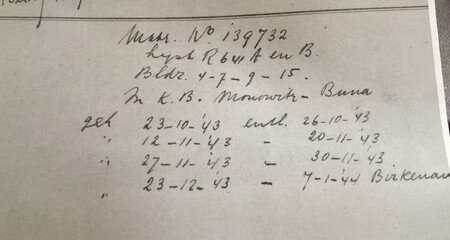 Matr. No 139732
lyst R 641 A en B.
Bldz. 4-7-9-15.
In K. B. Monowitz - Buna
geh 23-10-'43 entl. 26-10-'43
" 12-11-'43 - 20-11-'43
" 27-11-'43 - 30-11-'43
" 23-12-'43 - 7-1-'44 Birkenau